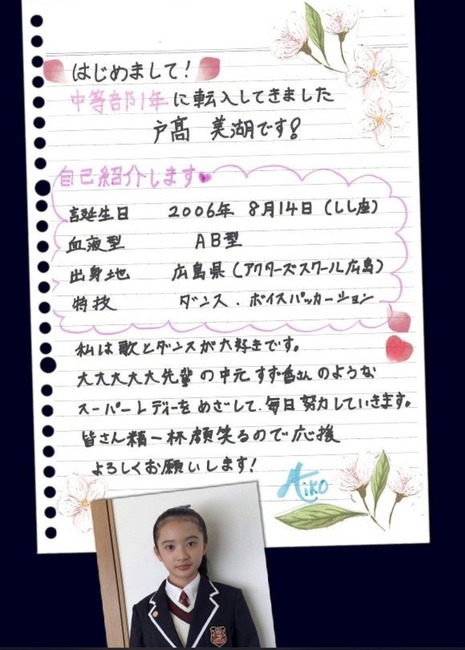 はじめまして!
中等部1年に転入してきました
戸髙 美湖です!
自己紹介します
誕生日 2006年 8月14日(しし座)
血液型 AB型
出身地 広島県(アクターズスクール広島)
特技 ダンス.ボイスパッカーション
私は歌とダンスが大好きです。
大大大大大先輩の中元すず香さんのような
スーパーレディーをめざして、毎日努力していきます。
皆さん精一杯顔笑るので応援
よろしくお願いします!
Aiko